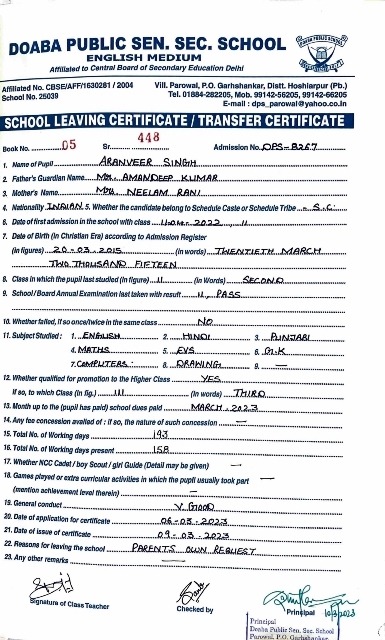 DOABA PUBLIC SEN. SEC. SCHOOL
ENGLISH MEDIUM
Affiliated to Central Board of Secondary Education Delhi
Affiliated No. CBSE/AFF/1630281 / 2004
School No. 25039
Vill. Parowal, P.O. Garhshankar, Distt. Hoshiarpur (Pb.)
Tel. 01884-282205, Mob. 99142-56205, 99142-66205
E-mail : dps_parowal@yahoo.co.in
SCHOOL LEAVING CERTIFICATE / TRANSFER CERTIFICATE
Book No. 05 Sr. 448 Admission No. DPS-8267
1. Name of Pupil ARANVEER SINGH
2. Father's Guardian Name MR. AMANDEEP KUMAR
3. Mother's Name NEELAM RANI
4. Nationality INDIAN 5. Whether the candidate belong to Schedule Caste or Schedule Tribe S.C.
6. Date of first admission in the school with class 11.04.2022, 11
7. Date of Birth (In Christian Era) according to Admission Register
(in figures) 20-03-2015 (in words) TWENTIETH MARCH
TWO THOUSAND FIFTEEN
8. Class in which the pupil last studied (In figure) 11 (in Words) SECOND
9. School / Board Annual Examination last taken with result 11, PASS
10. Whether failed, if so once/twice in the same class NO
11. Subject Studied : 1. ENGLISH 2. HINDI 3. PUNJABI
4. MATHS 5. EVS 6. G.K
7. COMPUTERS 8. DRAWING 9. —
12. Whether qualified for promotion to the Higher Class YES
If so, to which Class (in fig.) 111 (in words) THIRD
13. Month up to the (pupil has paid) school dues paid MARCH, 2023
14. Any fee concession availed of : if so, the nature of such concession —
15. Total No. of Working days 193
16. Total No. of Working days present 158
17. Whether NCC Cadet / boy Scout / girl Guide (Detail may be given) —
18. Games played or extra curricular activities in which the pupil usually took part
(mention achievement level therein) —
19. General conduct V. GOOD
20. Date of application for certificate 06-03-2023
21. Date of issue of certificate 09-03-2023
22. Reasons for leaving the school PARENTS OWN REQUEST
23. Any other remarks —
Signature of Class Teacher Checked by Principal 10/3/2023
Principal
Doaba Public Sen. Sec. School
Parowal, P.O. Garhshankar